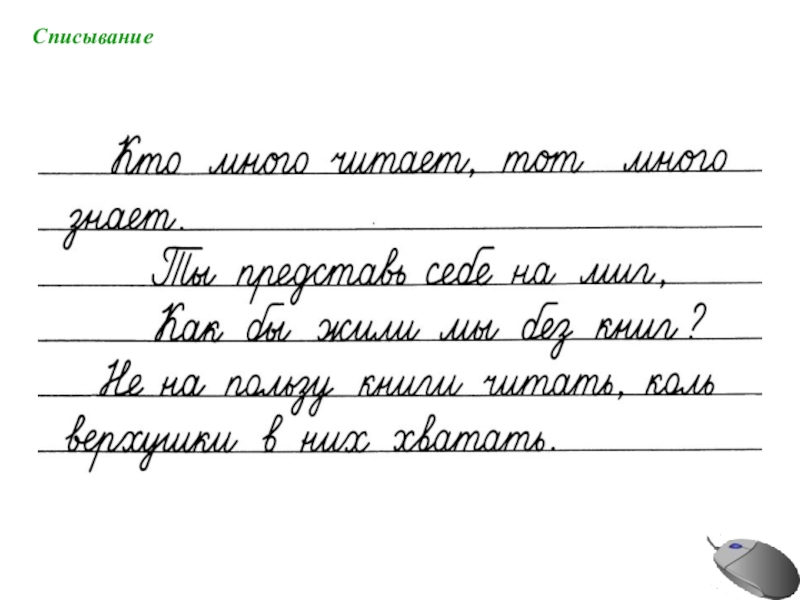 Списывание
Кто много читает, тот много
знает.
Ты представь себе на миг,
Как бы жили мы без книг?
Не на пользу книги читать, коль
верхушки в них хватать.